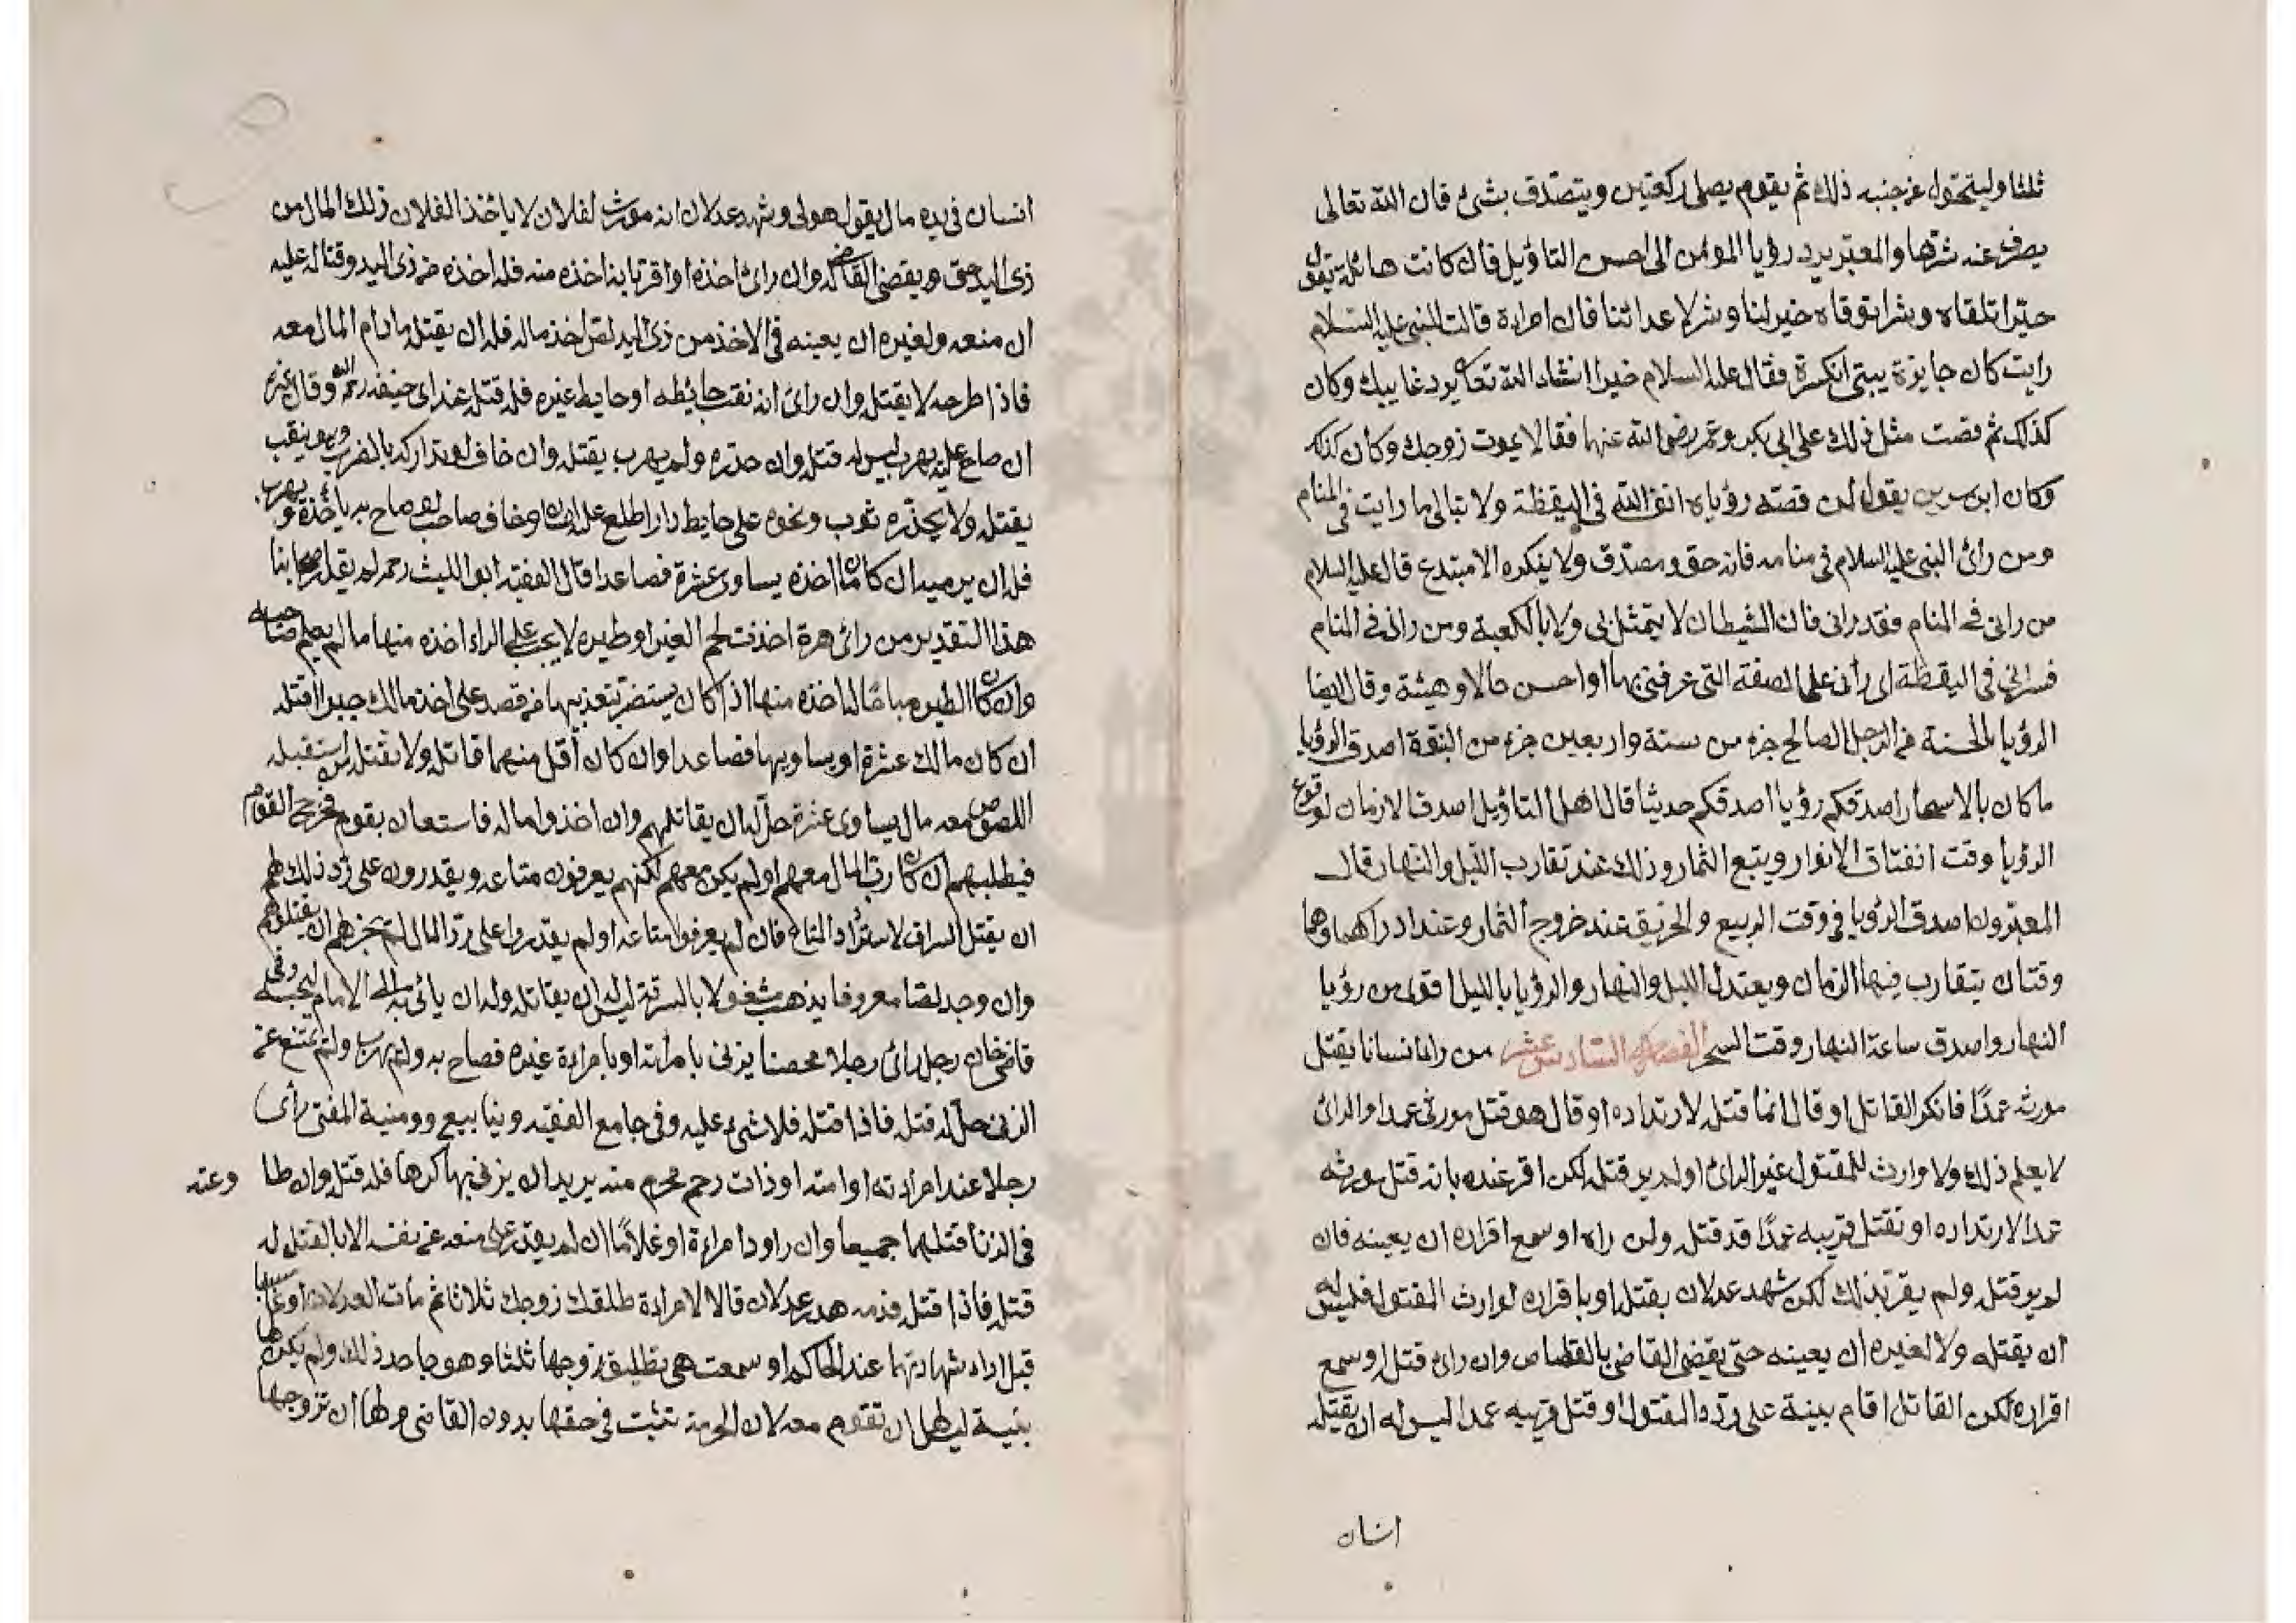 ثلثا وليتحول عن جنبه ذلك ثم يقوم يصلى ركعتين ويتصدق بشئ فان الله تعالى
يصرف عنه شرها والمعبر يرد رؤيا المومن الى احسن التاؤيل فان كانت هائلة يقول
خيرا تلقاه وشرا توقاه خير لنا وشر لاعدائنا فان امراءة قالت للنبى عليه السلام
رايت كان جايزة بيتى انكسرة فقال عليه السلام خيرا انشاء الله تعا يرد غايبك وكان
كذلك ثم قصت مثل ذلك على ابى بكر وعمر رضى الله عنهما فقالا يموت زوجك وكان كذلك
وكان ابن سيرين يقول لمن قصته رؤياه اتق الله فى اليقظة ولا تبالى ما رايت فى المنام
ومن رائ النبى عليه السلام فى منامه فانه حق ومصدق ولا ينكره الا مبتدع قال عليه السلام
من رانى فى المنام فقد رانى فان الشيطان لا يتمثل بى ولا بالكعبة ومن رانى فى المنام
فسرانى فى اليقظة اى رأنى على الصفة التى عرفنى بها او احسن حالا وهيئة وقال ايضا
الرؤيا الحسنة من الرجل الصالح جزء من ستة واربعين جزء من النبوة اصدق الرؤيا
ما كان بالاسحار اصدقكم رؤيا اصدقكم حديثا قال اهل التاؤيل اصدق الازمان لوقوع
الرؤيا وقت انفتاق الانوار وينع الثمار وذلك عند تقارب الليل والنهار قال
المعبرون اصدق الرؤيا فى وقت الربيع والخريف عند خروج الثمار وعند ادراكهما وهما
وقتان يتقارب فيهما الزمان ويعتدل الليل والنهار والرؤيا بالليل اقوى من رؤيا
النهار واصدق ساعة النهار وقت السحر الفصل السادس عشر من رائ انسانا يقتل
مورثه عمدًا فانكر القاتل او قال انما قتله لارتداده او قال هو قتل مورثى عمدا والرائ
لا يعلم ذلك ولا وارث للمقتول غير الرائ او لم ير قتله لكن اقر عنده بانه قتل مورثه
عمدا لارتداده او لقتل قريبه عمدًا قد قتله ولمن راه او سمع اقراره ان يعينه فان
لم ير قتله ولم يقر بذلك لكن شهد عدلان بقتله او باقراره لوارث المقتول فليس له
ان يقتله ولا لغيره ان يعينه حتى يقضى القاضى بالقصاص وان رائ قتله او سمع
اقراره لكن القاتل اقام بينة على ردة المقتول او قتل قريبه عمدا ليس له ان يقتله
انسان
انسان فى يده مال يقول هو لى وشهد عدلان انه مورث لفلان لا ياخذ الفلان ذلك المال من
ذى اليد حتى يقضى القاضى له وان رائ اخذه او اقر بانه اخذه منه فله اخذه من ذى اليد وقتاله عليه
ان منعه ولغيره ان يعينه فى الاخذ من ذى اليد لص اخذ ماله فله ان يقتله ما دام المال معه
فاذا طرحه لا يقتله وان رائ انه نقب حائطه او حايط غيره فله قتله عند ابى حنيفة رحمه الله وقال غيره
ان صاح عليه يهرب ليس له قتله وان حذره ولم يهرب يقتله وان خاف لو تداركه بالضرب وهو ينقب
يقتله ولا يحذره ثوب ونحوه على حايط دار اطلع عليه انسان وخاف صاحب لو صاح به ياخذه ويهرب
فله ان يرميه ان كان ما اخذه يساوى عشرة فصاعدا قال الفقيه ابو الليث رحمه لم يقل اصحابنا
هذا التقدير من رائ هرة اخذت لحم الغير او طيره لا يجب على الراء اخذه منها ما لم يعلم صاحبه
وان كان الطير مباحًا لنا خذه منها اذا كان يستضر بتعذيبها من قصد على اخذ مالك جبرا اقتله
ان كان مالك عشرة او يساويها فصاعدا وان كان اقل منهما قاتله ولا تقتله من استقبله
اللصوص معه مال يساوى عشرة حل له ان يقاتلهم وان اخذوا ماله فاستعان بقوم فخرج القوم
فيطلبهم ان كان رب المال معهم او لم يكن معهم لكنهم يعرفون متاعه ويقدرون على رد ذلك لهم
ان يقتل السراق لاسترداد المتاع فان لم يعرفوا متاعه او لم يقدروا على رد المال لم يجز لهم ان يقتلوهم
وان وجد لصا معروفا يذهب مشغولا بالسرقة ليس له ان يقاتله وله ان يأتى به الى الامام ليحبسه وفى
قاضى خان رجل رائ رجلا محصنا يزنى بامراته او بامراءة غيره فصاح به ولم يهرب ولم يمتنع عن
الزنى حل له قتله فاذا قتله فلا شئ عليه وفى جامع الفقيه وينابيع وومنية المفتى رأى
رجلا عند امراءته او امته او ذات رحم محرم منه يريد ان يزنى بها كرها فله قتله وان طا وعته
فى الزنا قتلهما جميعا وان راود امراءة او غلامًا ان لم يقدر على منعه عن نفسه الا بالقتل له
قتله فاذا قتله فدمه هدر عدلان قالا لامراءة طلقك زوجك ثلاثا ثم مات العدلان او غابا
قبل اداء شهادتهما عند الحاكم او سمعت هى تطليق زوجها ثلثا وهو جاحد ذلك ولم يكن لها
بينة ليس لها ان تقوم معه لان الحرمة تثبت فى حقها بدون القاضى ولها ان تزوجها